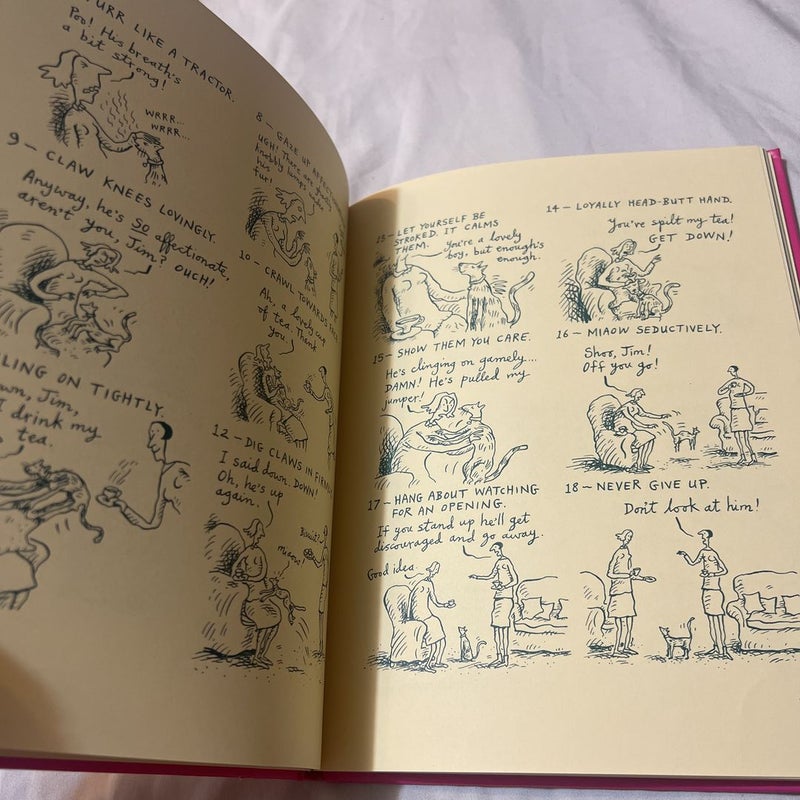 PURR LIKE A TRACTOR.
Poo! His breath's
a bit strong!
WRRR...
WRRR...
8 — GAZE UP
UGH! There are
knobbly lumps
his
fur!
9 — CLAW KNEES LOVINGLY.
Anyway, he's SO affectionate,
aren't you, Jim? OUCH!
10 — CRAWL TOWARDS
Ah, a lovely cup
of tea. Thank
you.
LING ON TIGHTLY.
wn, Jim,
I drink my
tea.
12 — DIG CLAWS IN FIRMLY
I said down. DOWN!
Oh, he's up
again.
Biscuit?
miaow!
13 — LET YOURSELF BE
STROKED. IT CALMS
THEM.
You're a lovely
boy, but enough's
enough.
14 — LOYALLY HEAD-BUTT HAND.
You've spilt my tea!
GET DOWN!
15 — SHOW THEM YOU CARE.
He's clinging on gamely...
DAMN! He's pulled my
jumper!
16 — MIAOW SEDUCTIVELY.
Shoo, Jim!
Off you go!
17 — HANG ABOUT WATCHING
FOR AN OPENING.
If you stand up he'll get
discouraged and go away.
Good idea.
18 — NEVER GIVE UP.
Don't look at him!